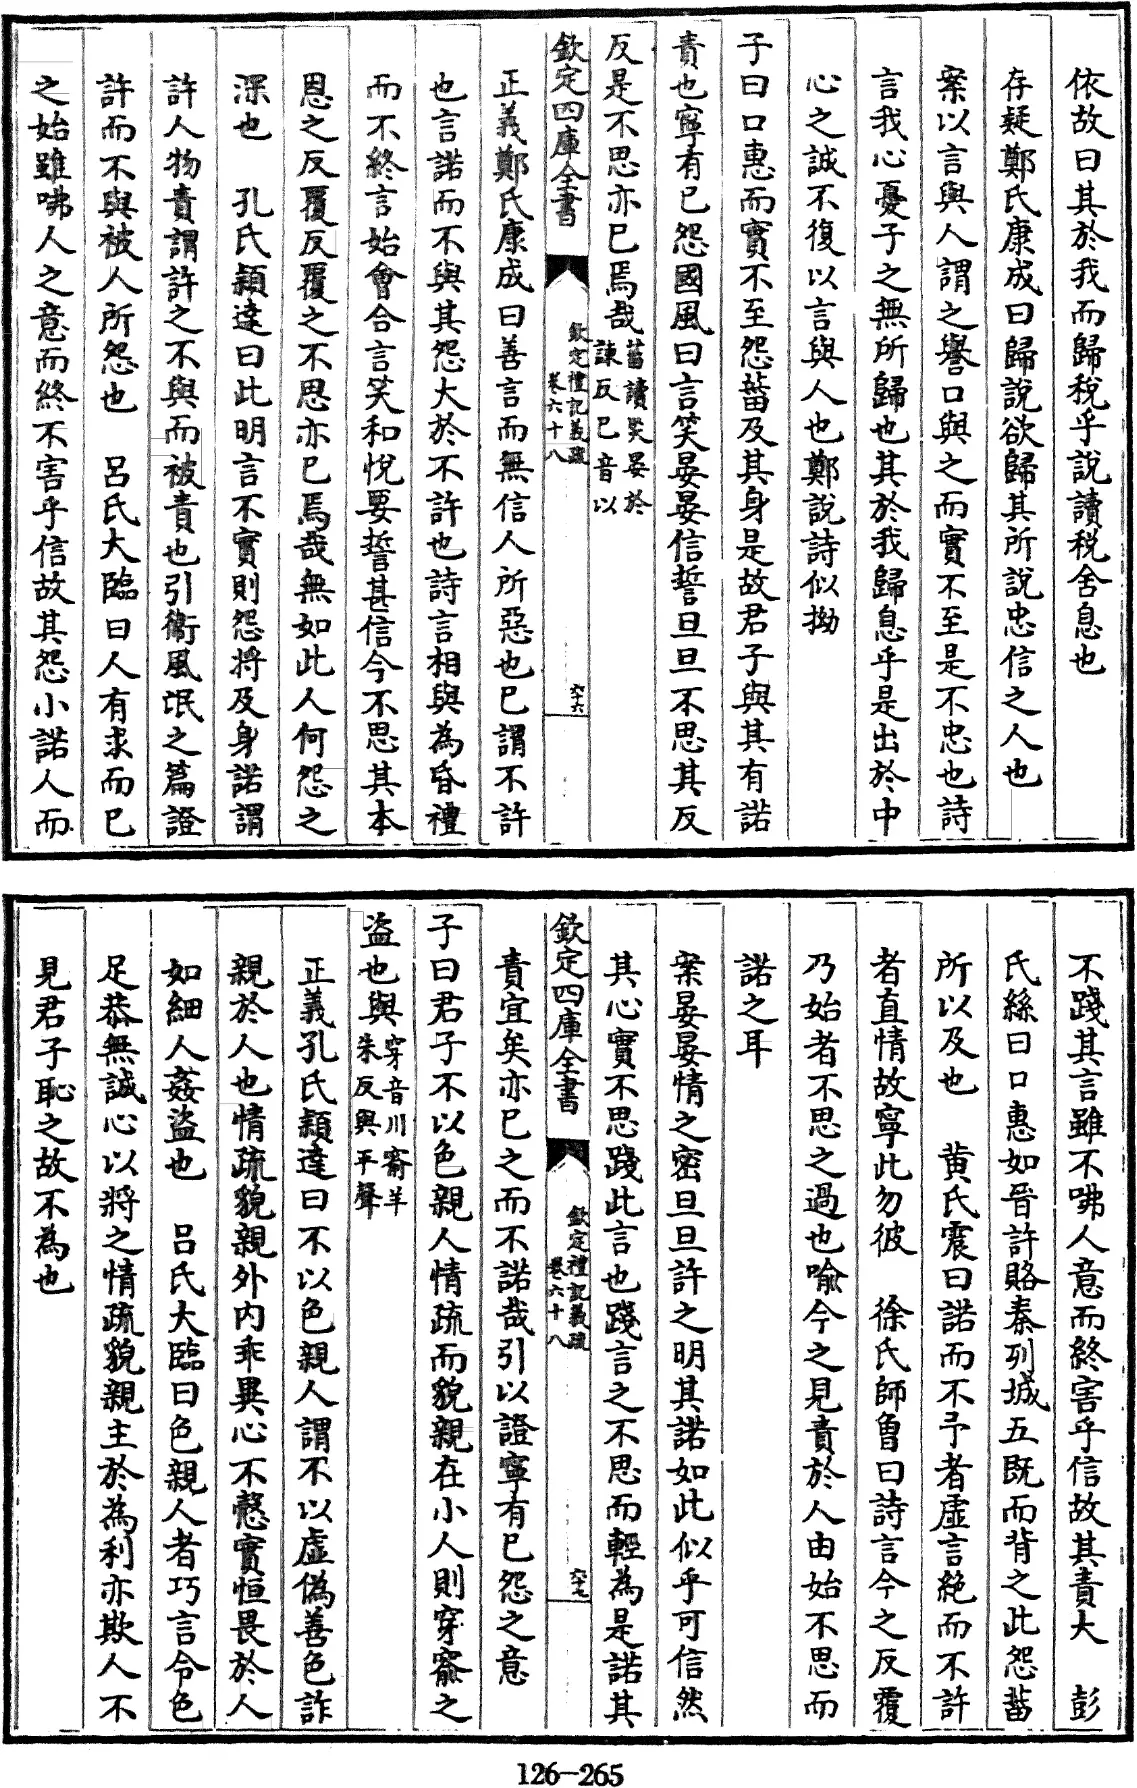 依故曰其於我而歸稅乎說讀稅舍息也
存疑鄭氏康成曰歸說欲歸其所說忠信之人也
案以言與人謂之譽口與之而實不至是不忠也詩
言我心憂子之無所歸也其於我歸息乎是出於中
心之誠不復以言與人也鄭說詩似拗
子曰口惠而實不至怨菑及其身是故君子與其有諾
責也寧有已怨國風曰言笑晏晏信誓旦旦不思其反
反是不思亦已焉哉
菑讀災晏於
諫反已音以
欽定四庫全書
欽定禮記義疏
卷六十八
六十六
正義鄭氏康成曰善言而無信人所惡也已謂不許
也言諾而不與其怨大於不許也詩言相與為昏禮
而不終言始會合言笑和悅要誓甚信今不思其本
恩之反覆反覆之不思亦已焉哉無如此人何怨之
深也 孔氏穎達曰此明言不實則怨將及身諾謂
許人物責謂許之不與而被責也引衛風氓之篇證
許而不與被人所怨也 呂氏大臨曰人有求而已
之始雖咈人之意而終不害乎信故其怨小諾人而
不踐其言雖不咈人意而終害乎信故其責大 彭
氏絲曰口惠如晉許賂秦列城五既而背之此怨菑
所以及也 黄氏震曰諾而不予者虛言絶而不許
者直情故寧此勿彼 徐氏師曾曰詩言今之反覆
乃始者不思之過也喻今之見責於人由始不思而
諾之耳
案晏晏情之密旦旦許之明其諾如此似乎可信然
其心實不思踐此言也踐言之不思而輕為是諾其
欽定四庫全書
欽定禮記義疏
卷六十八
六十七
責宜矣亦已之而不諾哉引以證寧有已怨之意
子曰君子不以色親人情疏而貌親在小人則穿窬之
盜也與
穿音川窬羊
朱反與平聲
正義孔氏穎達曰不以色親人謂不以虛偽善色詐
親於人也情疏貌親外内乖異心不慤實恒畏於人
如細人姦盜也 呂氏大臨曰色親人者巧言令色
足恭無誠心以將之情疏貌親主於為利亦欺人不
見君子恥之故不為也
126-265